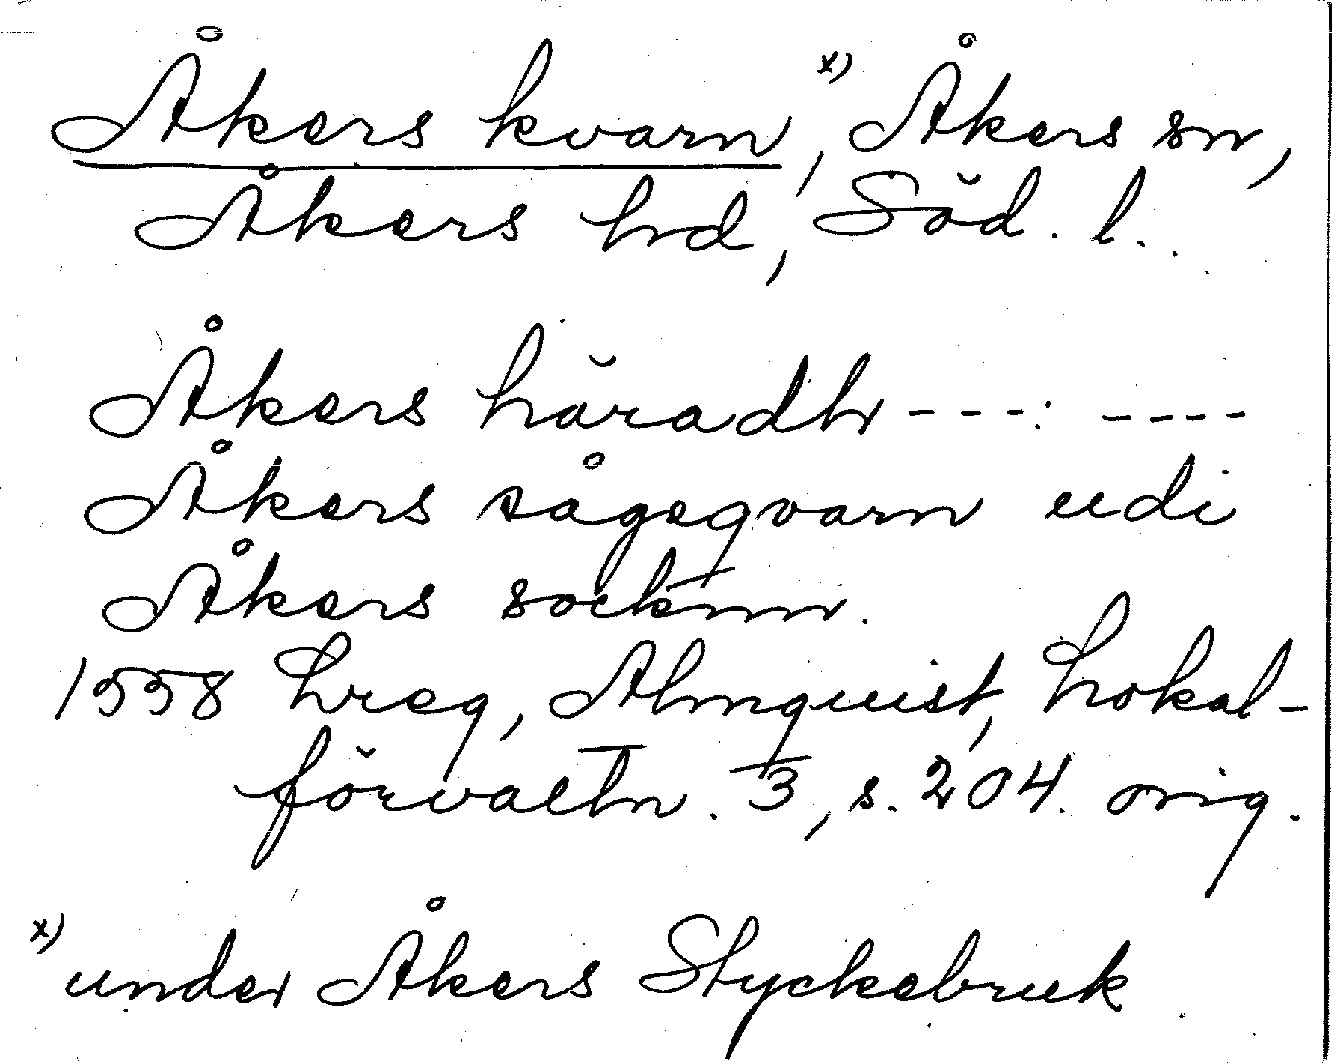 Åkers kvarn,x) Åkers sn,
Åkers hd, Söd. l.
Åkers häradh - - - : - - - -
Åkers sågeqvarn udi
Åkers socknn.
1558 Lreg, Almquist, Lokal-
förvaltn. 3, s. 204. orig.
x) under Åkers Styckebruk